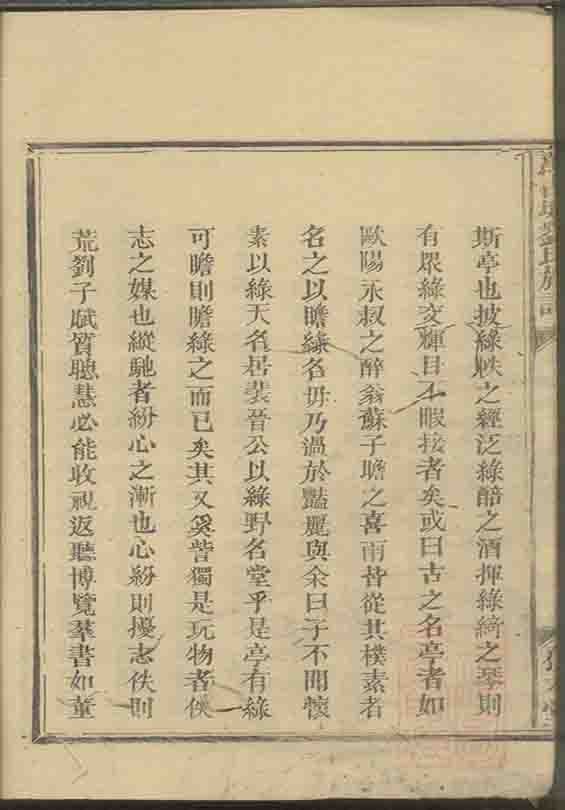 斯亭也披綠帙之經泛綠醅之酒揮綠綺之琴則
有眾綠交輝目不暇接者矣或曰古之名亭者如
歐陽永叔之醉翁蘇子瞻之喜雨皆從其樸素者
名之以瞻綠名毋乃過於豔麗與余曰子不聞懷
素以綠天名居裴晉公以綠野名堂乎是亭有綠
可瞻則瞻綠之而已矣其又奚訾獨是玩物者佚
志之媒也縱馳者紛心之漸也心紛則擾志佚則
荒劉子賦質聰慧必能收視返聽博覽羣書如董
劉氏族